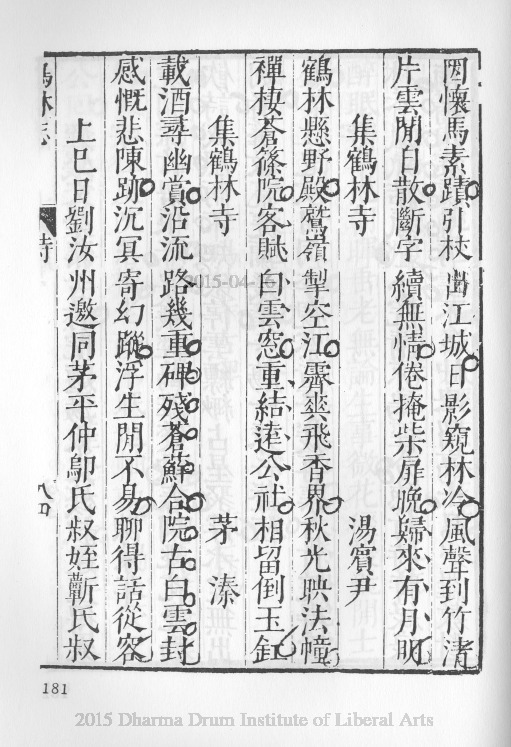 因懷馬素蹟引杖出江城日影窺林冷風聲到竹清
片雲閒日散斷字續無情倦掩柴扉晚歸來有月明
集鶴林寺 湯賓尹
鶴林懸野殿鷲嶺掣空江霽爽飛香界秋光映法幢
禪棲蒼篠院客賦白雲窓重結遠公社相留倒玉缸
集鶴林寺 茅溱
載酒尋幽賞沿流路幾重碑殘蒼蘚合院古白雲封
感慨悲陳跡沉冥寄幻蹤浮生閒不易聊得話從容
上巳日劉汝州邀同茅平仲鄔氏叔姪靳氏叔
鶴林志 詩 八四
181
2015-04-16
2015 Dharma Drum Institute of Liberal Arts